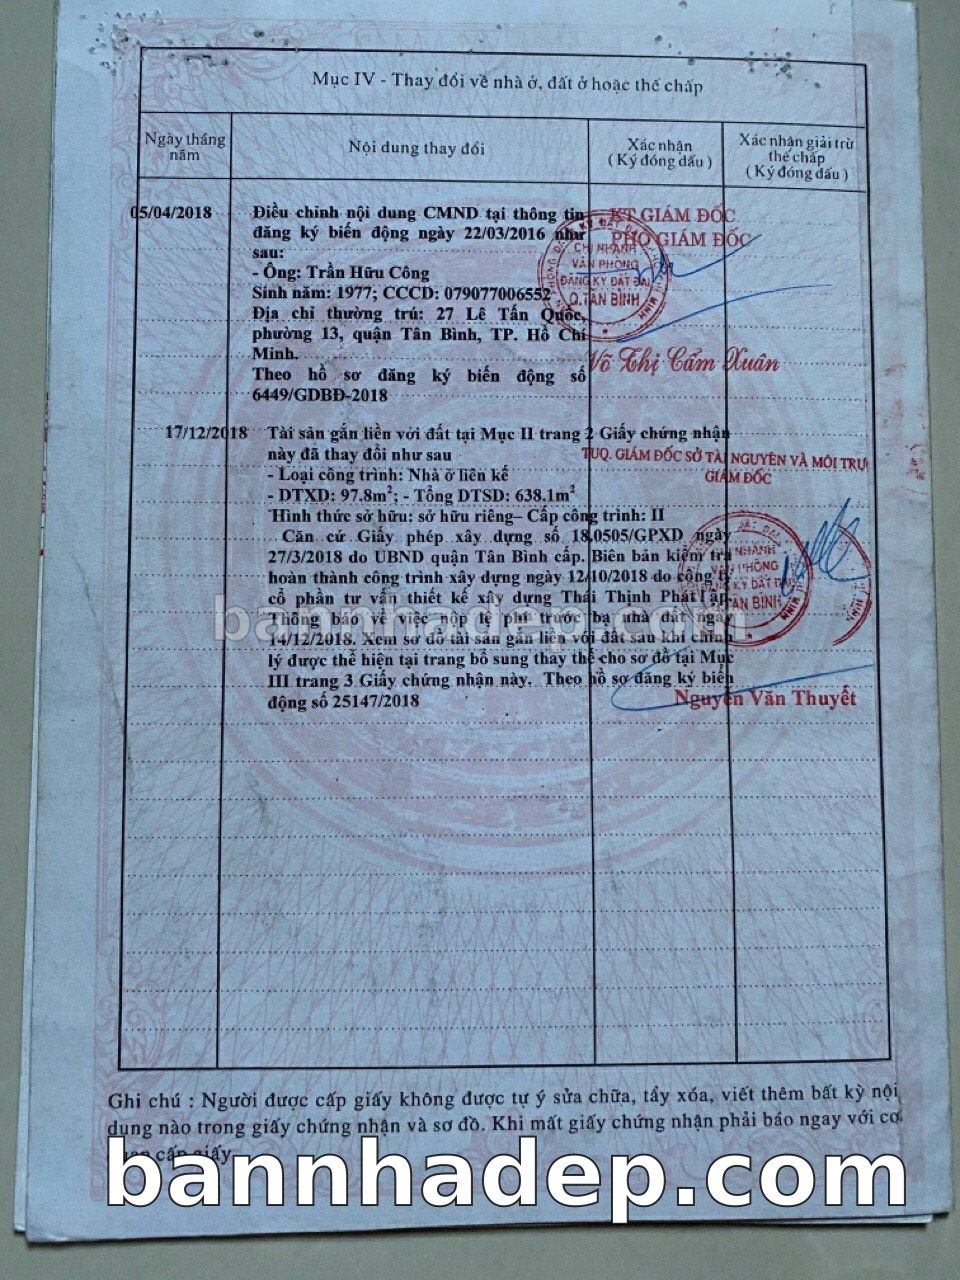 Mục IV - Thay đổi về nhà ở, đất ở hoặc thế chấp
Ngày tháng năm
Nội dung thay đổi
Xác nhận
( Ký đóng dấu )
Xác nhận giải trừ
thế chấp
( Ký đóng dấu )
05/04/2018
Điều chỉnh nội dung CMND tại thông tin
đăng ký biến động ngày 22/03/2016 như
sau:
- Ông: Trần Hữu Công
Sinh năm: 1977; CCCD: 079077006552
Địa chỉ thường trú: 27 Lê Tấn Quốc,
phường 13, quận Tân Bình, TP. Hồ Chí
Minh.
Theo hồ sơ đăng ký biến động số
6449/GDBĐ-2018
KT GIÁM ĐỐC
PHÓ GIÁM ĐỐC
CHI NHÁNH
VĂN PHÒNG
ĐĂNG KÝ ĐẤT ĐAI
Q.TÂN BÌNH
Võ Thị Cẩm Xuân
17/12/2018
Tài sản gắn liền với đất tại Mục II trang 2 Giấy chứng nhận
này đã thay đổi như sau
- Loại công trình: Nhà ở liên kế
- DTXD: 97.8m²; - Tổng DTSD: 638.1m²
Hình thức sở hữu: sở hữu riêng– Cấp công trình: II
Căn cứ Giấy phép xây dựng số 18.0505/GPXD ngày
27/3/2018 do UBND quận Tân Bình cấp. Biên bản kiểm tra
hoàn thành công trình xây dựng ngày 12/10/2018 do công ty
cổ phần tư vấn thiết kế xây dựng Thái Thịnh Phát lập.
Thông báo về việc nộp lệ phí trước bạ nhà đất ngày
14/12/2018. Xem sơ đồ tài sản gắn liền với đất sau khi chỉnh
lý được thể hiện tại trang bổ sung thay thế cho sơ đồ tại Mục
III trang 3 Giấy chứng nhận này. Theo hồ sơ đăng ký biến
động số 25147/2018
TUQ. GIÁM ĐỐC SỞ TÀI NGUYÊN VÀ MÔI TRƯ
GIÁM ĐỐC
NHÁNH
VĂN PHÒNG
KÝ ĐẤT ĐAI
TÂN BÌNH
Nguyễn Văn Thuyết
bannhadep.com
Ghi chú : Người được cấp giấy không được tự ý sửa chữa, tẩy xóa, viết thêm bất kỳ nội
dung nào trong giấy chứng nhận và sơ đồ. Khi mất giấy chứng nhận phải báo ngay với cơ
cấp giấy.
bannhadep.com